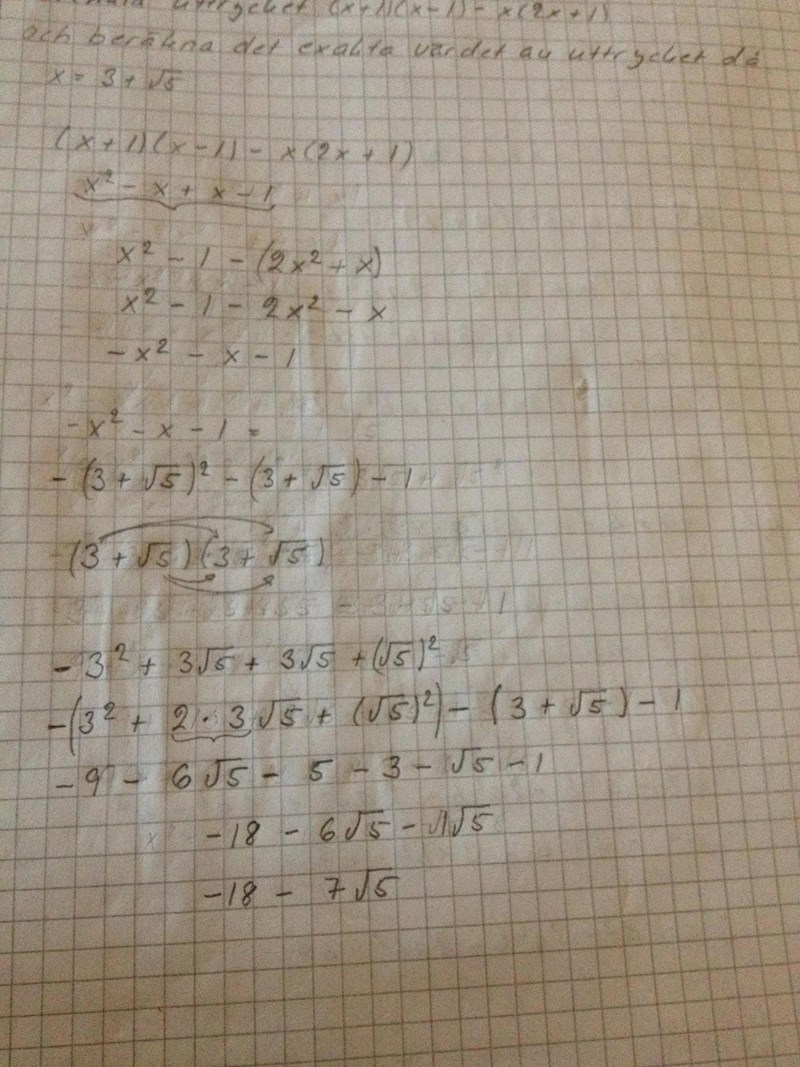 uttrycket (x+1)(x-1) - x(2x+1)
och beräkna det exakta värdet au uttrycket då
x = 3 + √5
(x+1)(x-1) - x(2x+1)
x² - x + x - 1
x² - 1 - (2x² + x)
x² - 1 - 2x² - x
-x² - x - 1
-x² - x - 1 =
- (3 + √5)² - (3 + √5) - 1
(3 + √5)(3 + √5)
- 3² + 3√5 + 3√5 + (√5)²
-(3² + 2·3√5 + (√5)²) - (3 + √5) - 1
- 9 - 6√5 - 5 - 3 - √5 - 1
-18 - 6√5 - 1√5
-18 - 7√5